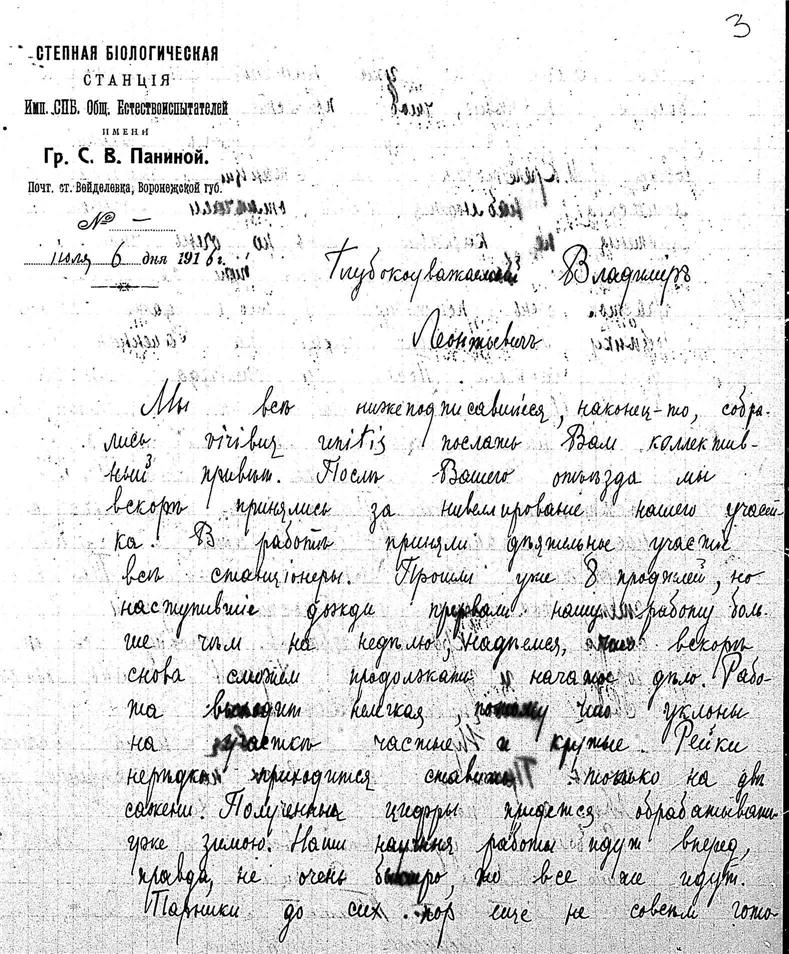 3
СТЕПНАЯ БІОЛОГИЧЕСКАЯ
СТАНЦІЯ
Имп. СПБ. Общ. Естествоиспытателей
ИМЕНИ
Гр. С. В. Паниной.
Почт. ст. Вейделевка, Воронежской губ.
№ —
іюля 6 дня 1916 г.
Глубокоуважаемый Владиміръ
Леонтьевичъ
Мы всѣ нижеподписавшіеся, наконец-то, собра-
лись viribus unitis послать Вам коллектив-
ный привѣт. Послѣ Вашего отъѣзда мы
вскорѣ принялись за нивеллированіе нашего участ-
ка. В работѣ приняли дѣятельное участіе
всѣ станціонеры. Прошли уже 8 профилей, но
наступившіе дожди прервали нашу работу боль-
ше чѣм на недѣлю; надѣемся, что вскорѣ
снова сможем продолжать начатое дѣло. Рабо-
та выходит нелегкая, потому что уклоны
на участкѣ частые и крутые. Рейки
нерѣдко приходится ставить только на двѣ
сажени. Полученныя цифры придется обрабатывать
уже зимою. Наши научныя работы идут вперед,
правда, не очень быстро, но все же идут.
Парники до сих пор еще не совсѣм гото